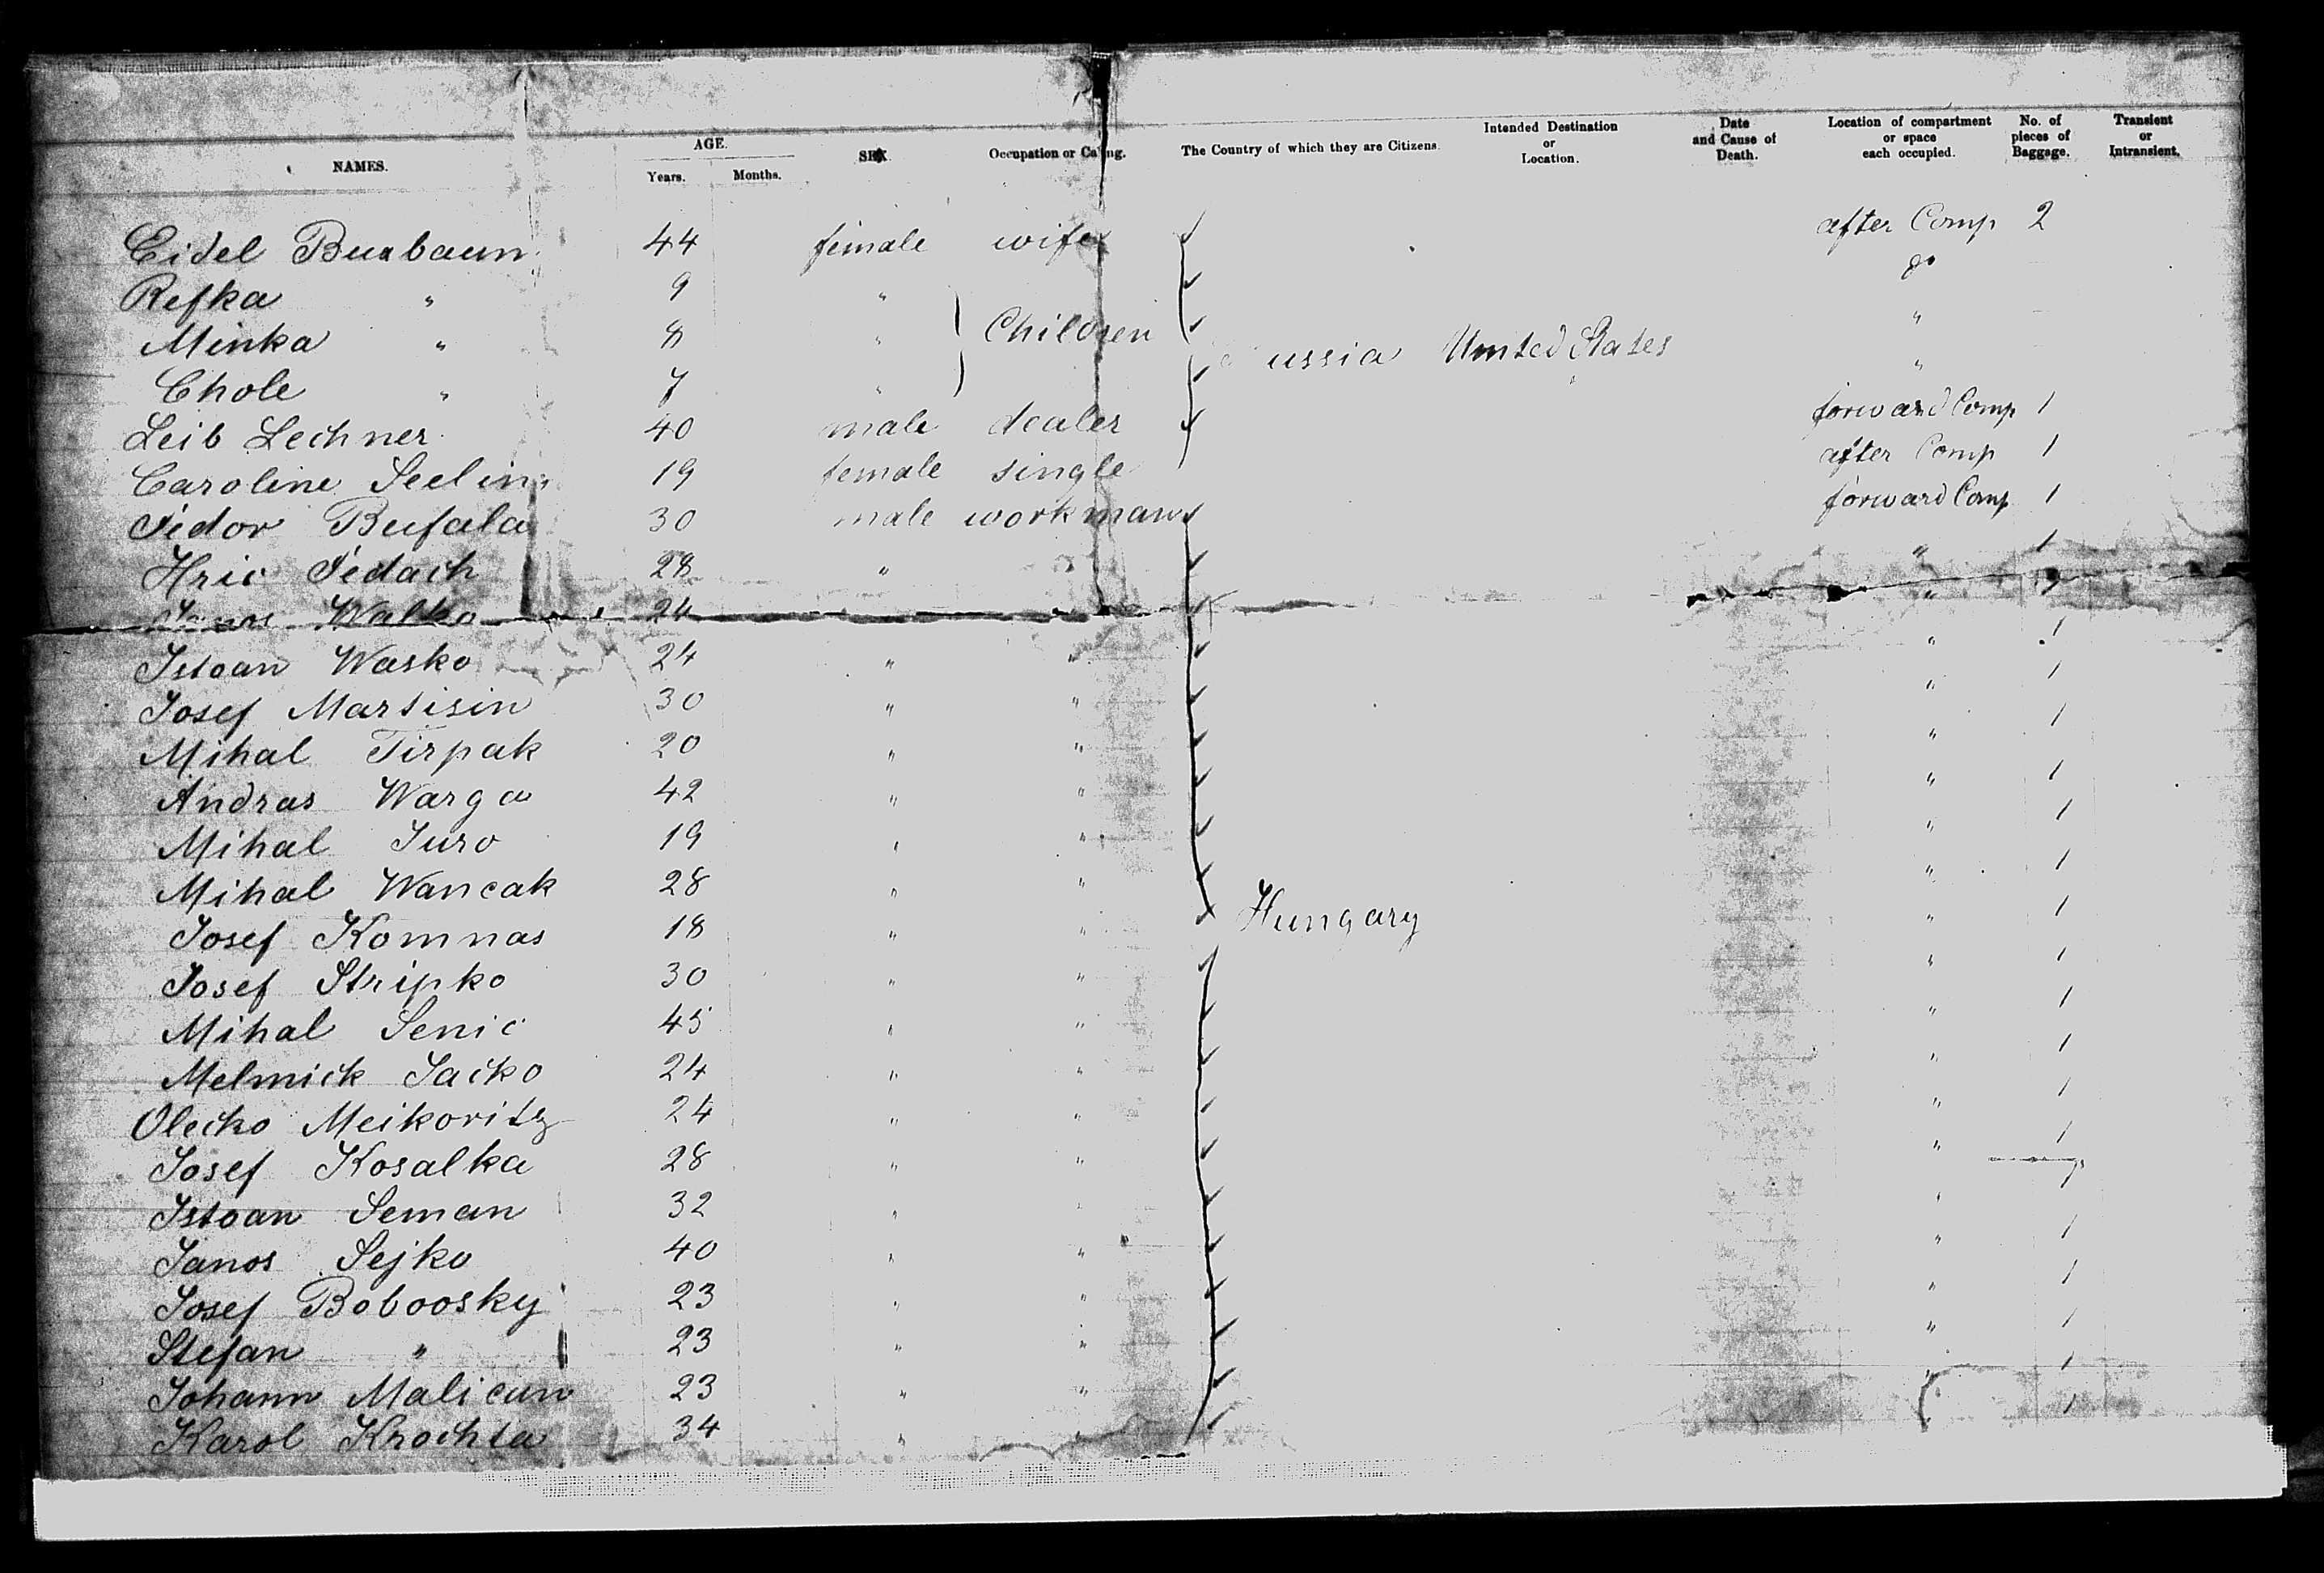 NAMES. AGE. Years. Months. SEX. Occupation or Calling. The Country of which they are Citizens. Intended Destination or Location. Date and Cause of Death. Location of compartment or space each occupied. No. of pieces of Baggage. Transient or Intransient.
Eidel Buxbaum 44 female wife after Comp 2
Refka " 9 " do
Minka " 8 " Children "
ussia United States
Chole " 7 " "
Leib Lechner 40 male dealer forward Comp 1
Caroline Seelin 19 female single after Comp 1
Fedor Bufala 30 male workman forward Comp 1
Hric Fedach 28 " " " 1
Walko 24 "
Istvan Wasko 24 " " " 1
Josef Martisin 30 " " " 1
Mihal Tirpak 20 " " " 1
Andras Warga 42 " " " 1
Mihal Juro 19 " " " 1
Mihal Wancak 28 " " " 1
Josef Komnas 18 " " Hungary " 1
Josef Stripko 30 " " " 1
Mihal Senic 45 " " " 1
Melmick Jacko 24 " " " 1
Olecko Meikovitz 24 " " " 1
Josef Kosalka 28 " " " 1
Istvan Seman 32 " " " 1
Janos Sejko 40 " " " 1
Josef Bobovsky 23 " " " 1
Stefan " 23 " " " 1
Johann Malicun 23 " " " 1
Karol Krochta 34 " " 1